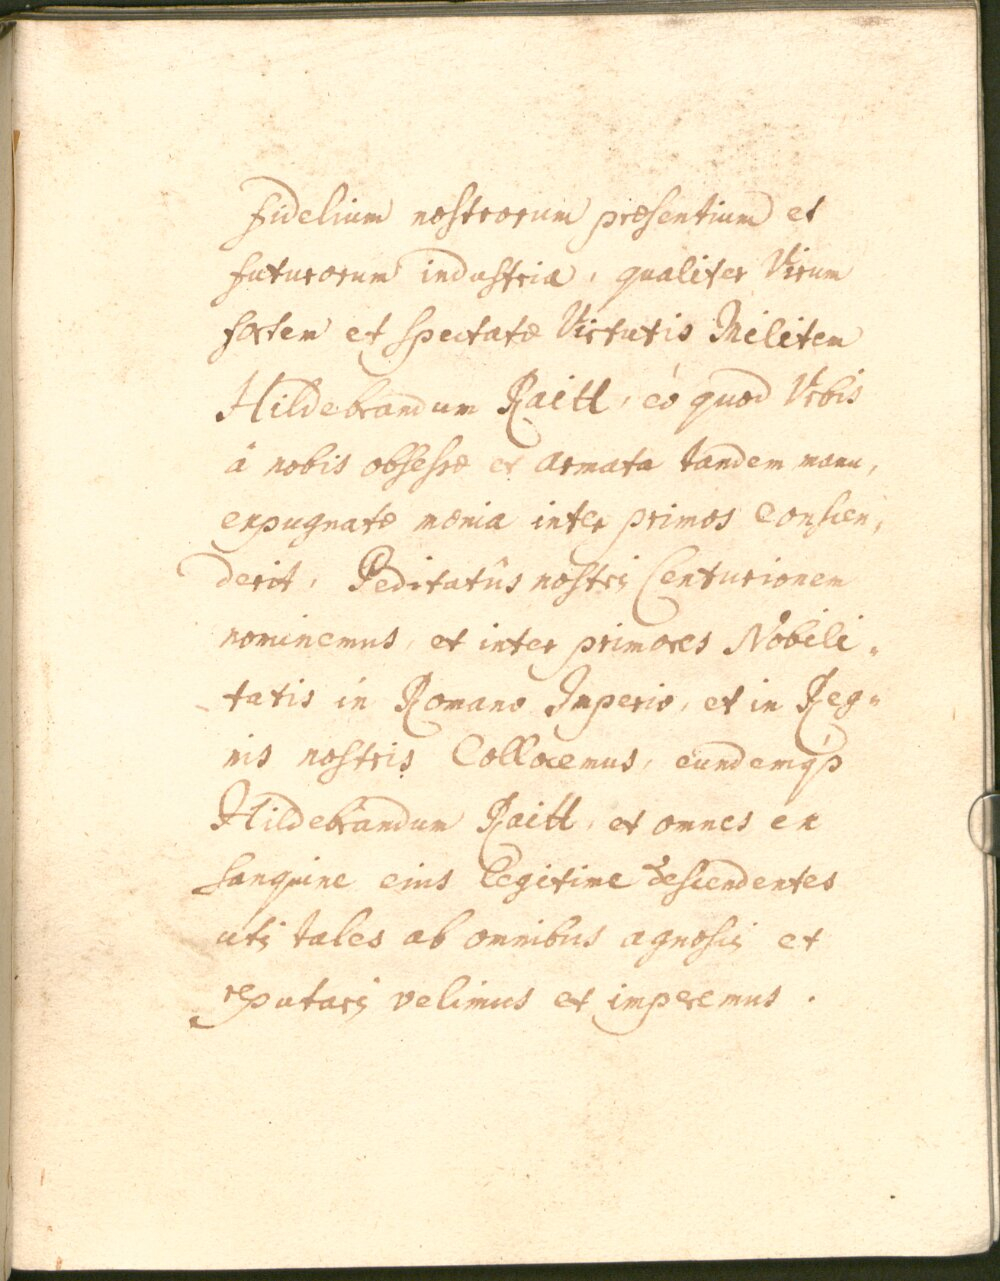 fidelium nostrorum præsentium et
futurorum industria, qualiter Virum
fortem et spectatæ Virtutis Militem
Hildebrandum Raitt, eò quod Vrbis
à nobis obsessæ et armata tandem manu,
expugnatæ mænia inter primos Conscen,
derit, Peditatûs nostri Centurionem
nominemus, et inter primores Nobili„
tatis in Romano Imperio, et in Reg„
nis nostris Collocemus, eundemqȝ
Hildebrandum Raitt, et omnes ex
sanquine eius legitime descendentes
uti tales ab omnibus agnosci et
reputari velimus et imperemus .